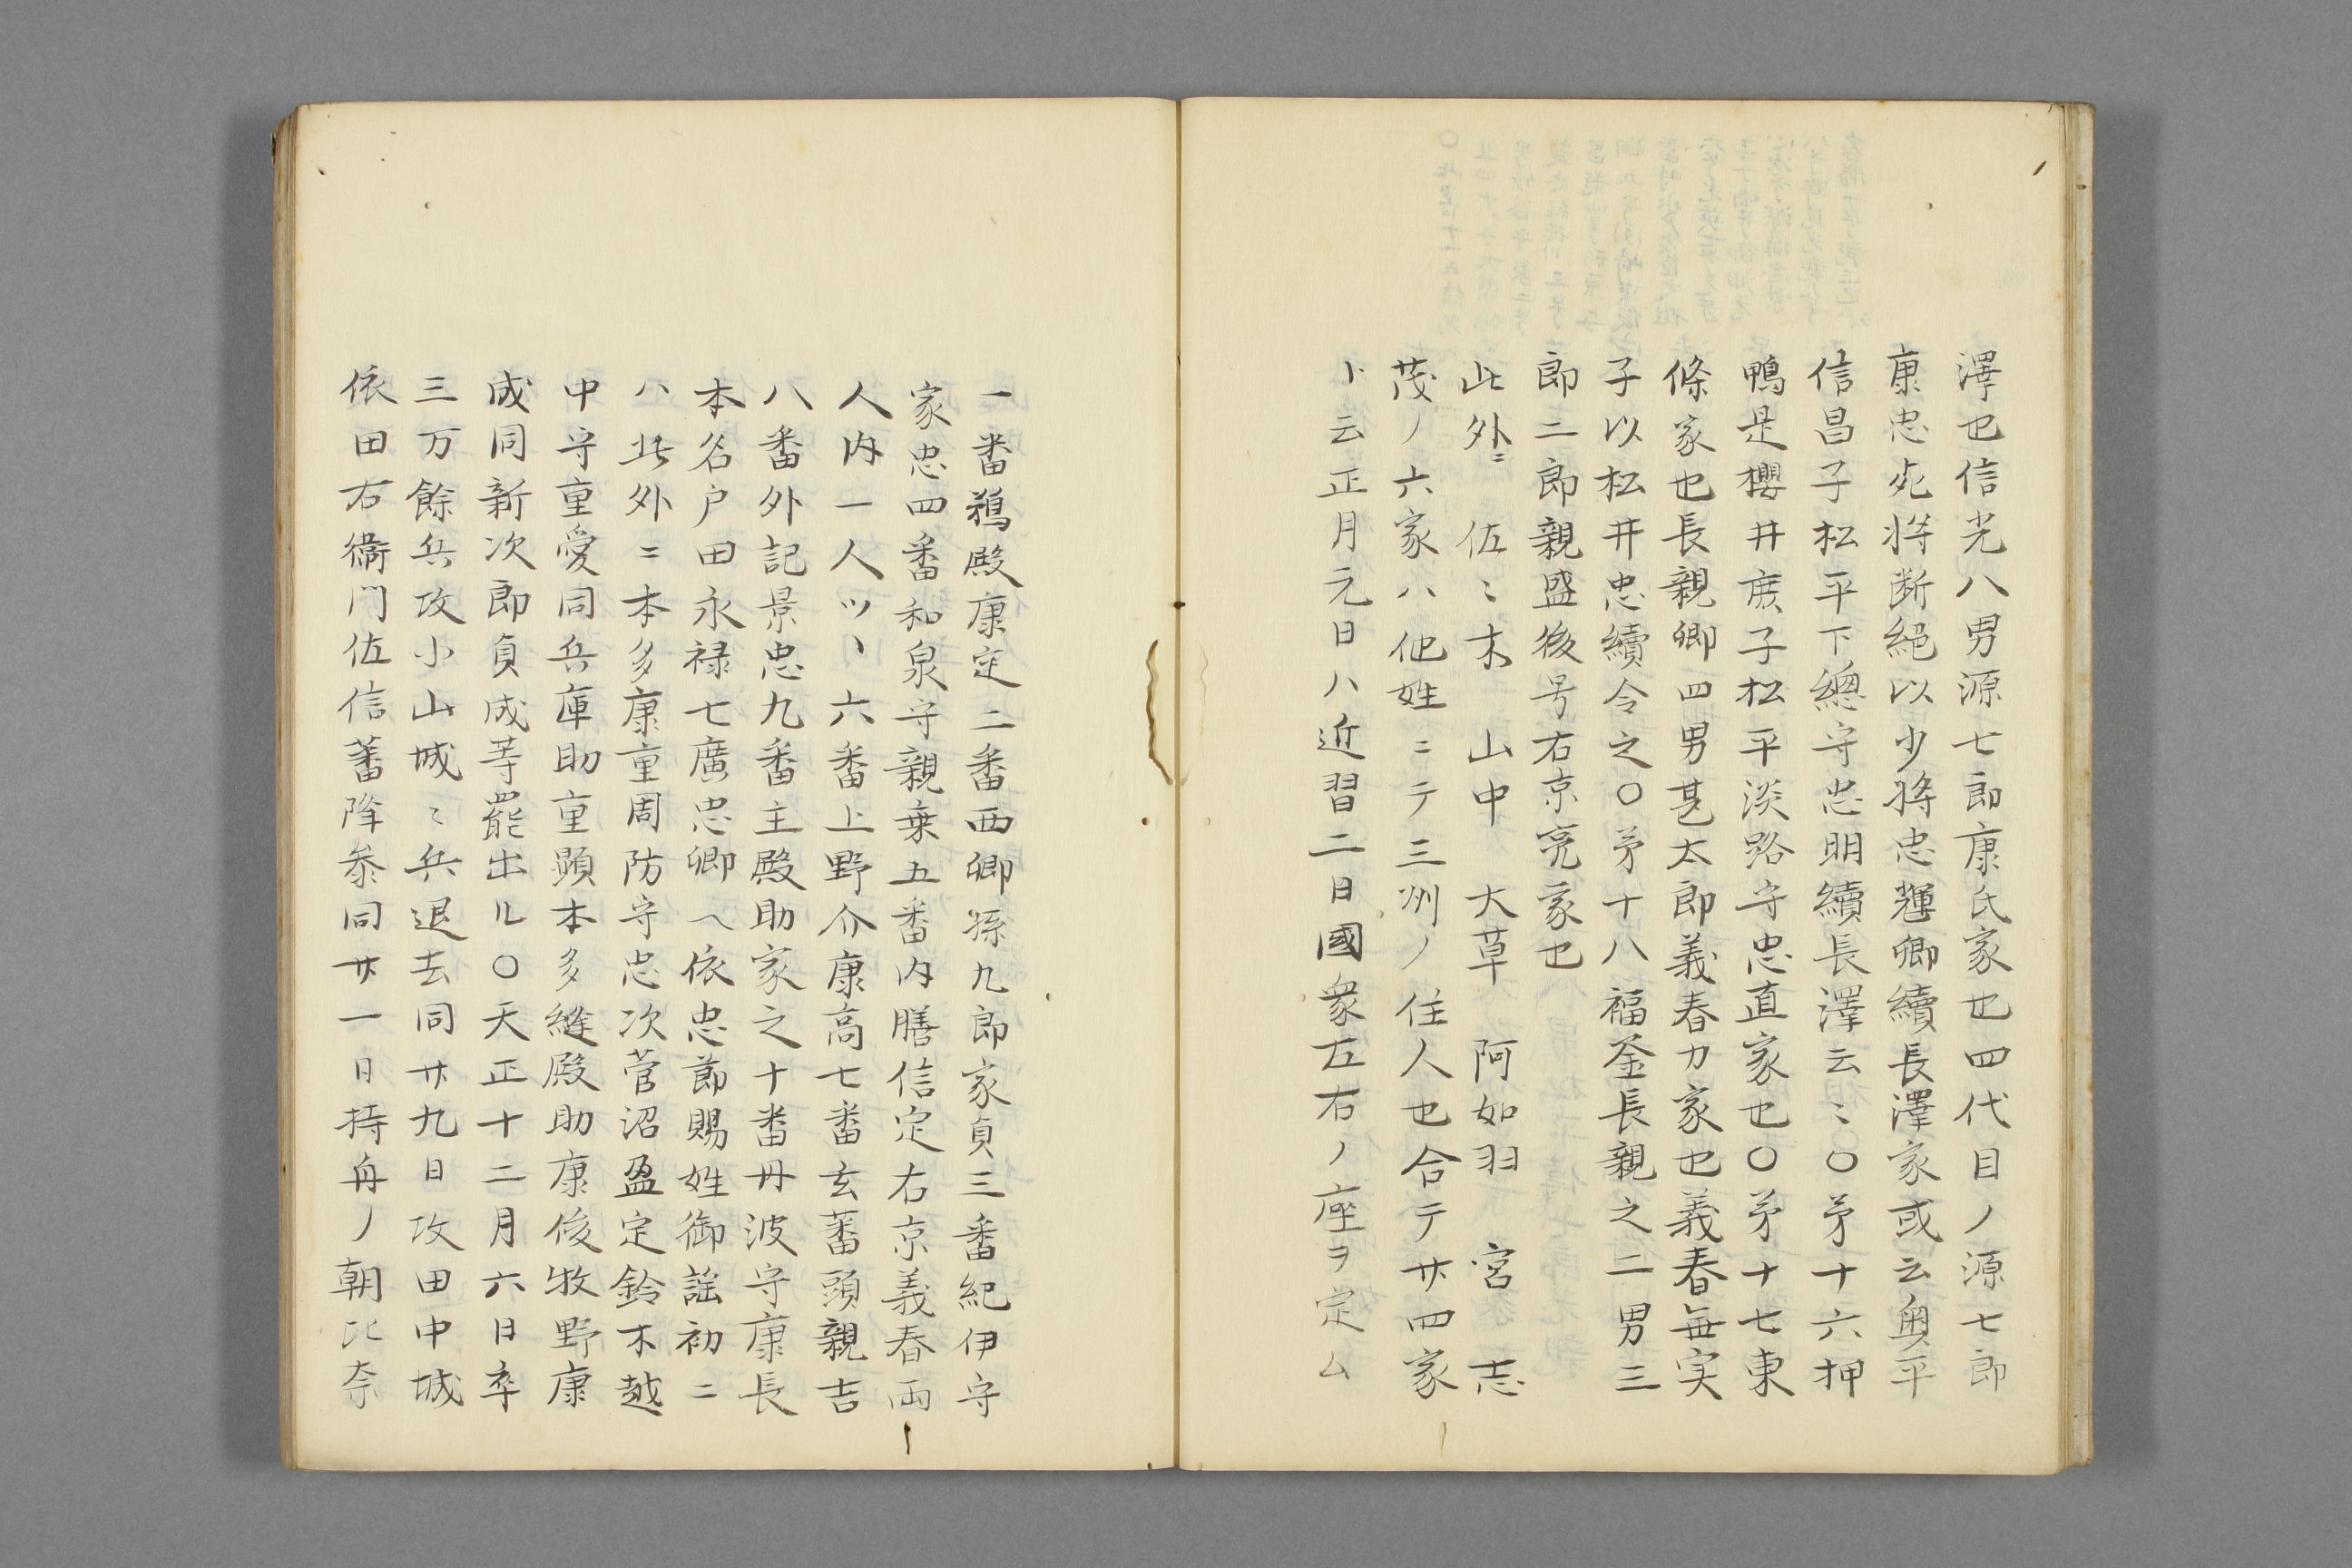 澤也信光八男源七郎康氏家也四代目ノ源七郎
康忠死将断絶以少将忠輝卿續長澤家或云奥平
信昌子松平下總守忠明續長澤云〻〇㐧十六押
鴨是櫻井庶子松平淡路守忠直家也〇㐧十七東
條家也長親卿四男甚太郎義春カ家也義春無実
子以松井忠續令之〇㐧十八福釜長親之二男三
郎二郎親盛後号右京亮家也
此外ニ　佐〻木　山中　大草　阿如羽　宮　志
茂ノ六家ハ他姓ニテ三州ノ住人也合テ廾四家
ト云正月元日ハ近習二日國衆左右ノ座ヲ定ム
一番鵜殿康定二番西卿孫九郎家員三番紀伊守
家忠四番和泉守親乗五番内膳信定右京義春両
人内一人ツヽ六番上野介康高七番玄蕃頭親吉
八番外記景忠九番主殿助家之十番丹波守康長
本名戸田永禄七廣忠卿ヘ依忠節賜姓御謡初ニ
ハ此外ニ本多康重周防守忠次菅沼盈定鈴木越
中守重愛同兵庫助重顕本多縫殿助康俊牧野康
成同新次郎貞成等罷出ル〇天正十二月六日卒
三万餘兵攻小山城〻兵退去同廾九日攻田中城
依田右衞門佐信蕃降参同廾一日持舟ノ朝比奈